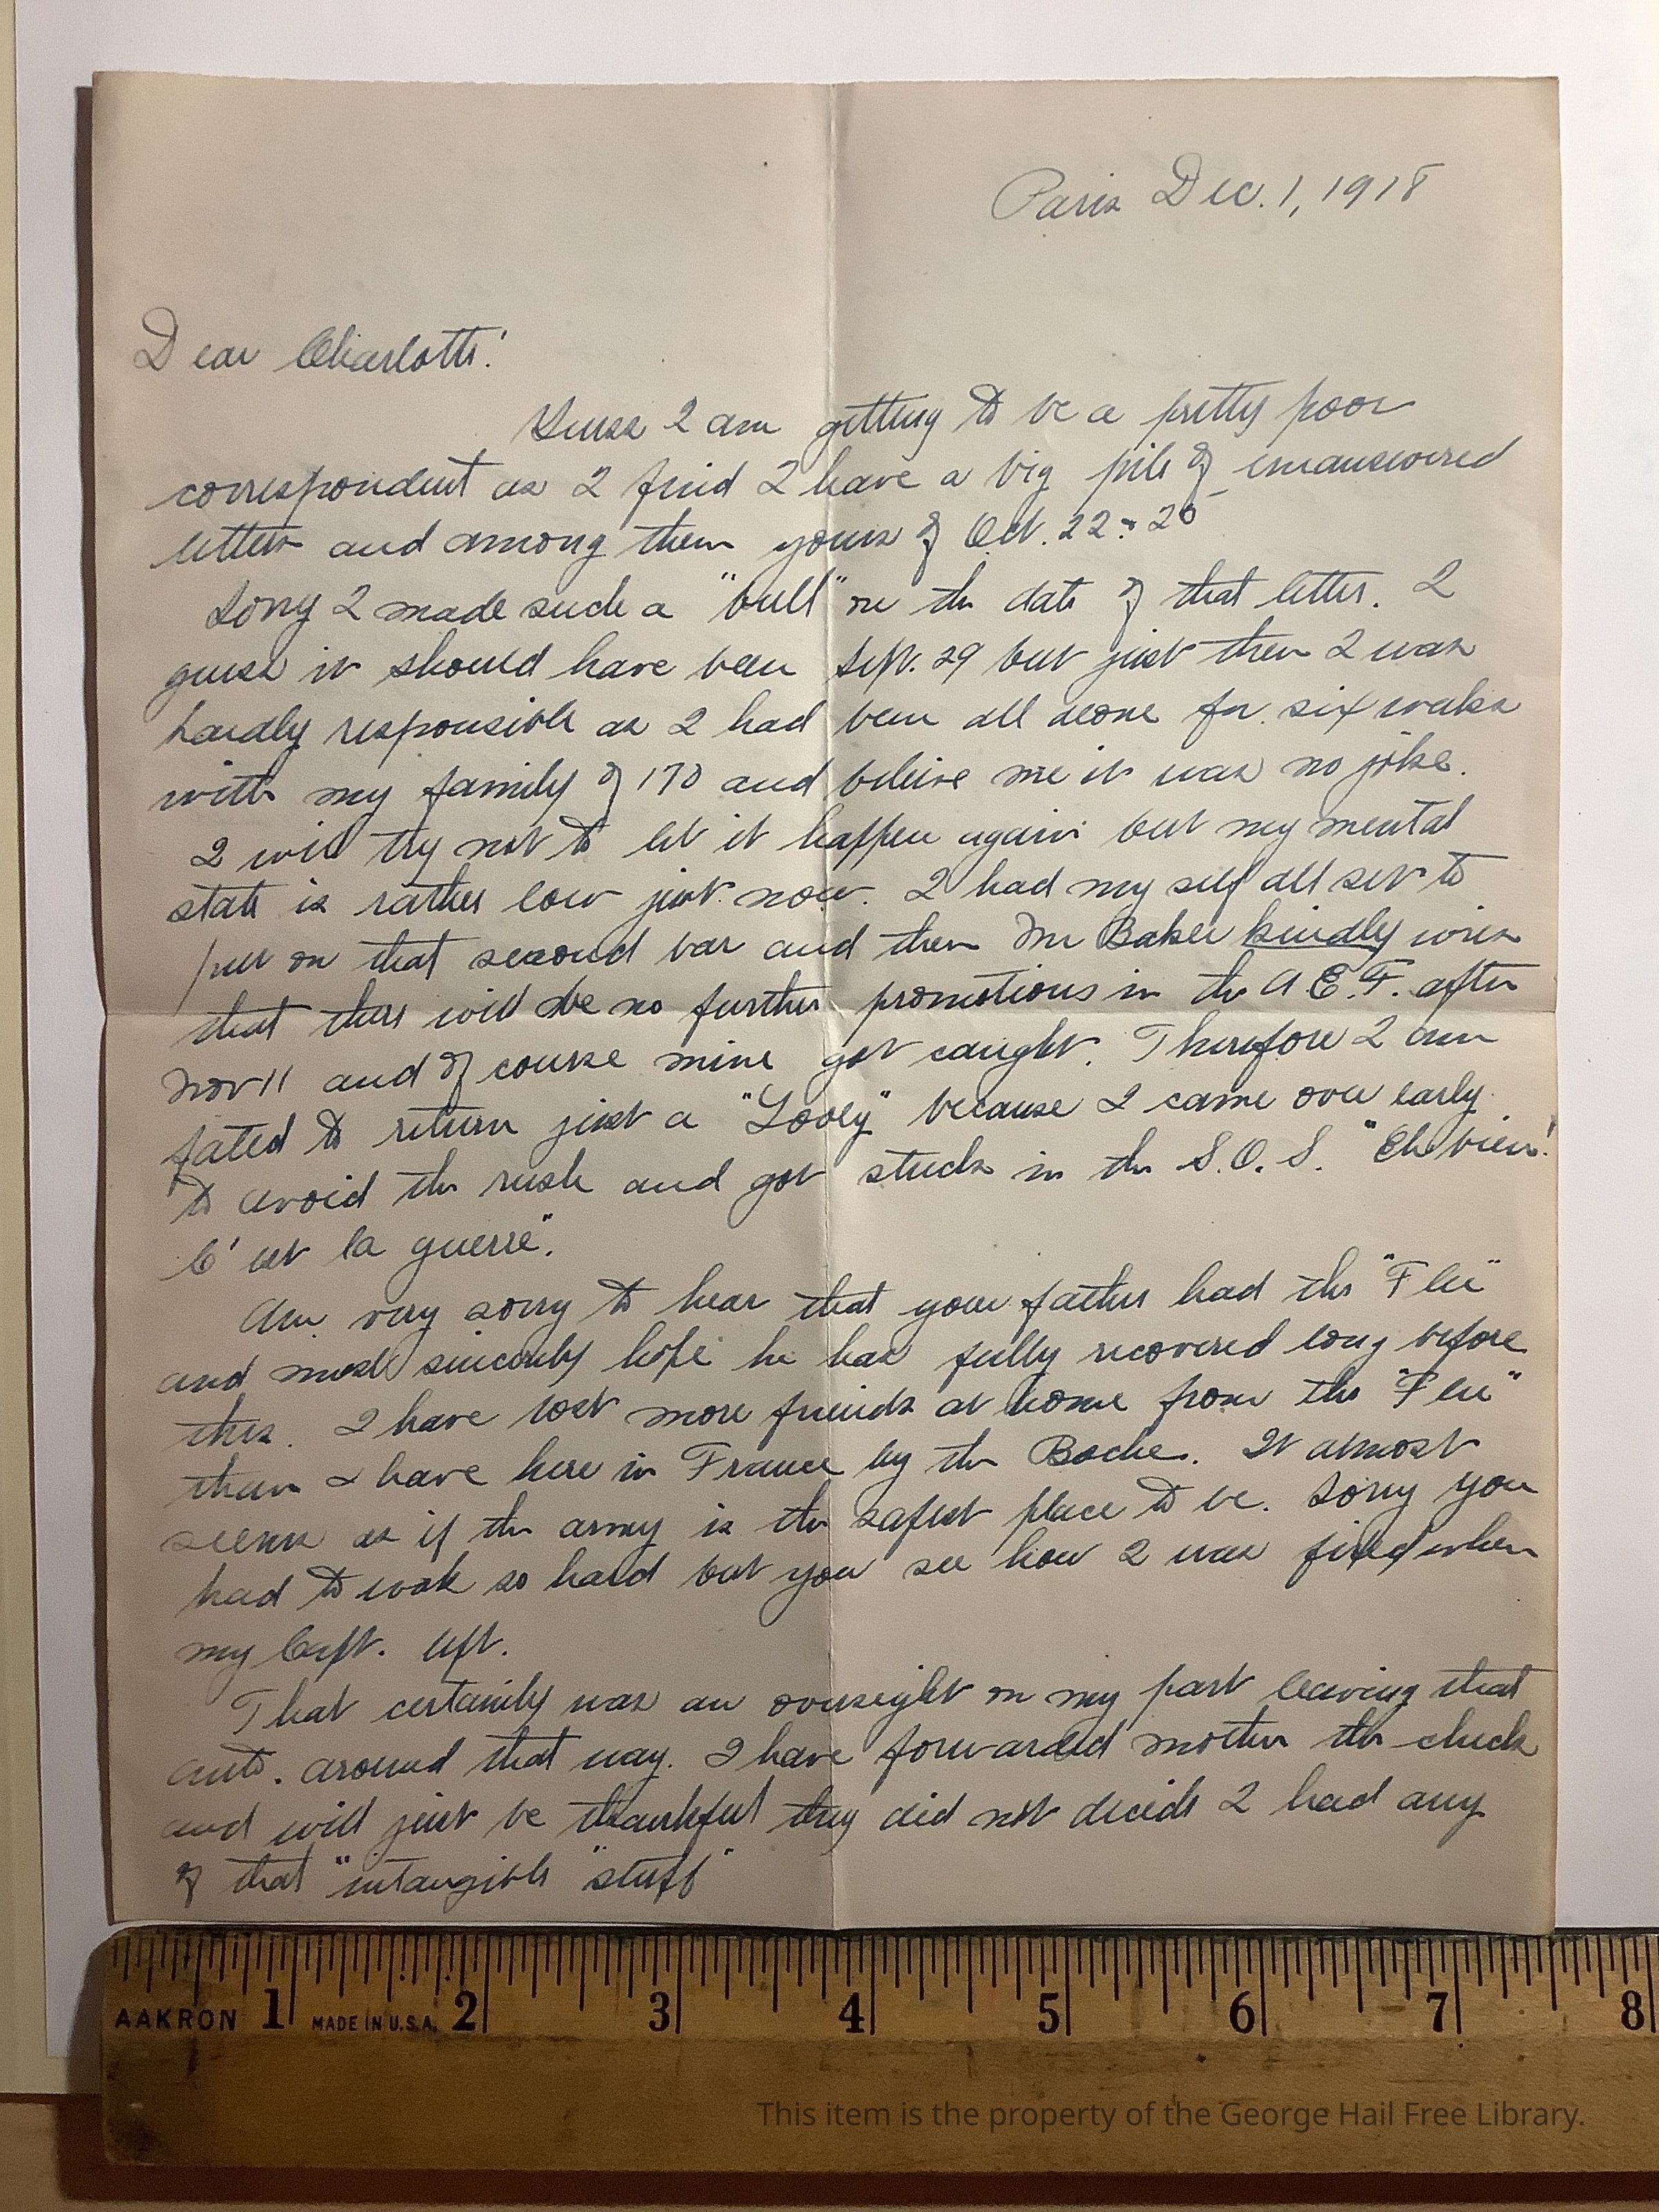 Paris Dec. 1, 1918
Dear Charlotte:
Guess I am getting to be a pretty poor
correspondent as I find I have a big pile of unanswered
letters and among them yours of Oct. 22 & 26
Sorry I made such a "bull" on the date of that letter. I
guess it should have been Sept. 29 but just then I was
hardly responsible as I had been all alone for six weeks
with my family of 170 and believe me it was no joke.
I will try not to let it happen again but my mental
state is rather low just now. I had my self all set to
put on that second bar and then Mr Baker kindly wires
that there will be no further promotions in the A.E.F. after
Nov 11 and of course mine got caught. Therefore I am
fated to return just a "Looey" because I came over early
to avoid the rush and got stuck in the S.O.S. "Eh bien!
C'est la guerre".
Am very sorry to hear that your father had the "Flu"
and most sincerely hope he has fully recovered long before
this. I have lost more friends at home from the "Flu"
than I have here in France by the Boche. It almost
seems as if the army is the safest place to be. Sorry you
had to work so hard but you see how I was fixed when
my Capt. left.
That certainly was an oversight on my part leaving that
auto. around that way. I have forwarded mother the check
and will just be thankful they did not decide I had any
of that "intangible "stuff"
AAKRON 1 MADE IN U.S.A. 2 3 4 5 6 7 8
This item is the property of the George Hail Free Library.